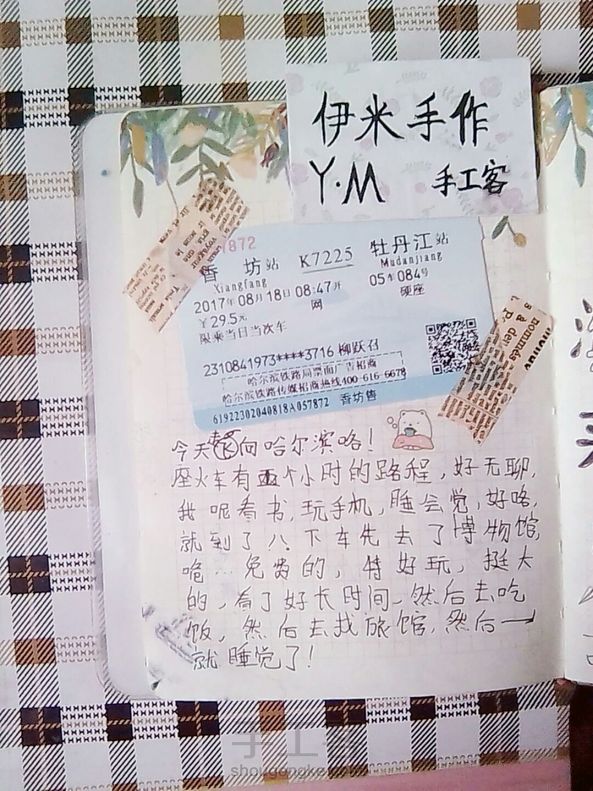 伊米手作
Y·M 手工客
1872
香坊站 K7225 牡丹江站
Xiangfang Mudanjiang
2017年08月18日08:47开 05车084号
￥29.5元 网 硬座
限乘当日当次车
2310841973****3716 柳跃召
哈尔滨铁路局票面广告招商
哈尔滨铁路传媒招商热线400-616-6678
61922302040818A057872 香坊售
今天 向哈尔滨咯！
座火车有五个小时的路程，好无聊，
我呢看书，玩手机，睡会觉，好咯，
就到了八、下车先去了博物馆，
免费的，特好玩，挺大
的，看了好长时间、然后去吃
饭，然后去找旅馆，然后一
就睡觉了！
手工客
shougongke.com